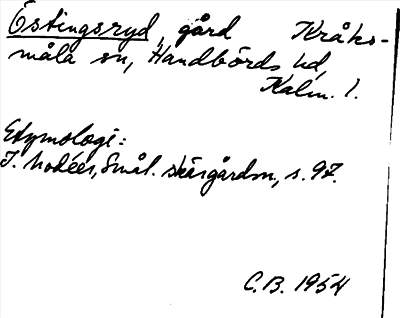 Östingsryd, gård Kråks-
måla sn, Handbörds hd,
Kalm. l.
Etymologi:
I. Modéer, Smål. skärgårdsn., s. 97.
C.B. 1954